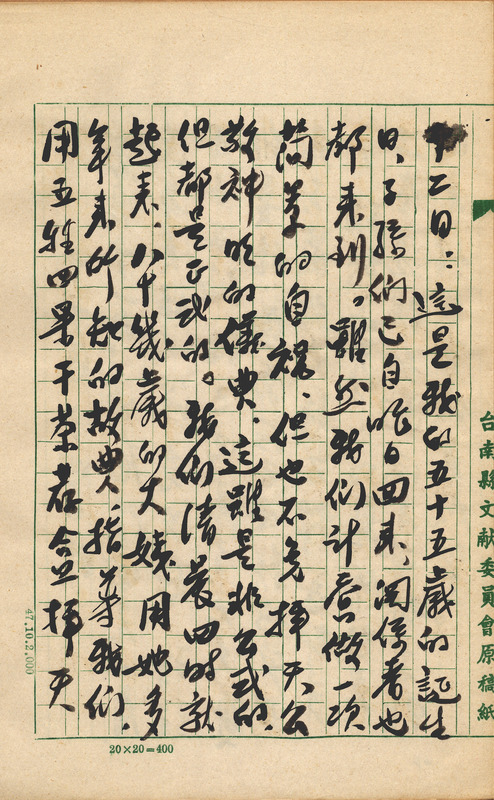 十二日:這是我的五十五歲的誕生
日、子孫們已自昨日回來、関係者也
都來到。雖然我們計畧做一次
簡单的自祝、但也不免拝天公
敬神明的儀典、這雖是非公式的、
但都是正式的。我們清晨四時就
起來、八十幾歲的大姨用她多
年來所知的故典、指導我們、
用五牲四果干菜荐盒拝天
台南縣文献委員會原稿紙
47.10.2,000
20×20=400